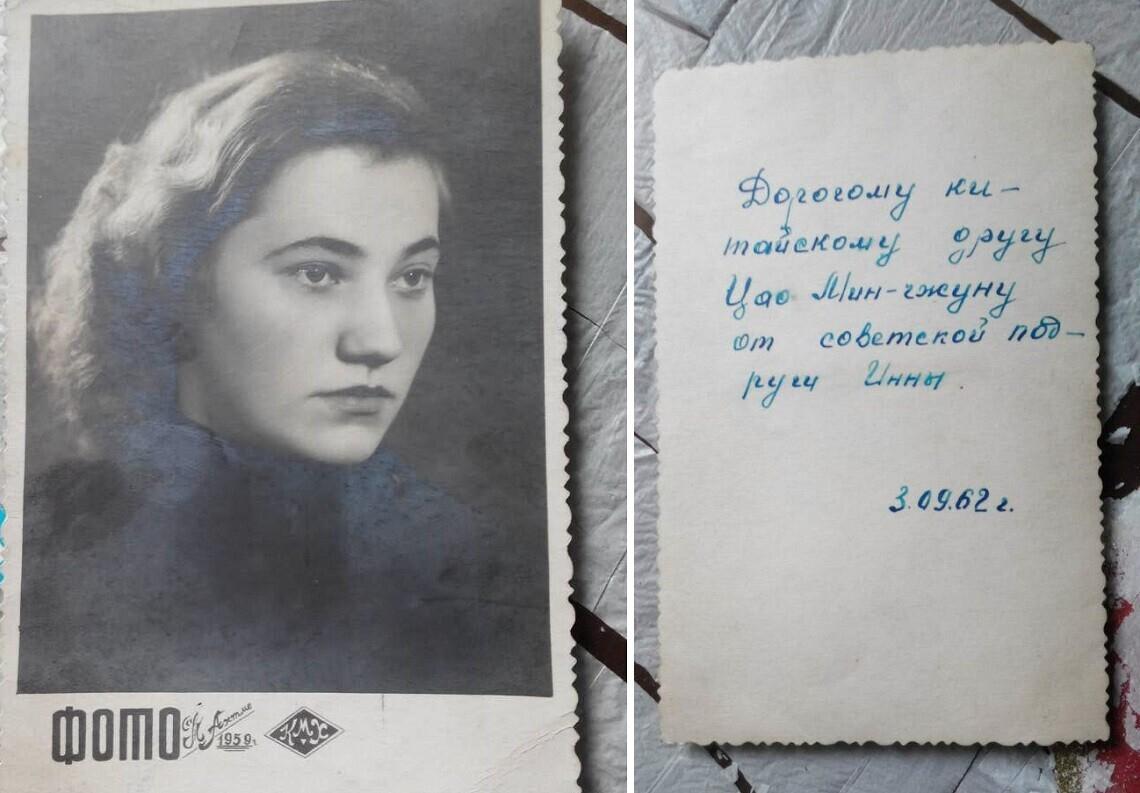 ФОТО
Ахтме
1959г.
КМХ
Дорогому ки-
тайскому другу
Цао Мин-чжуну
от советской под-
руги Инны.
3.09.62 г.